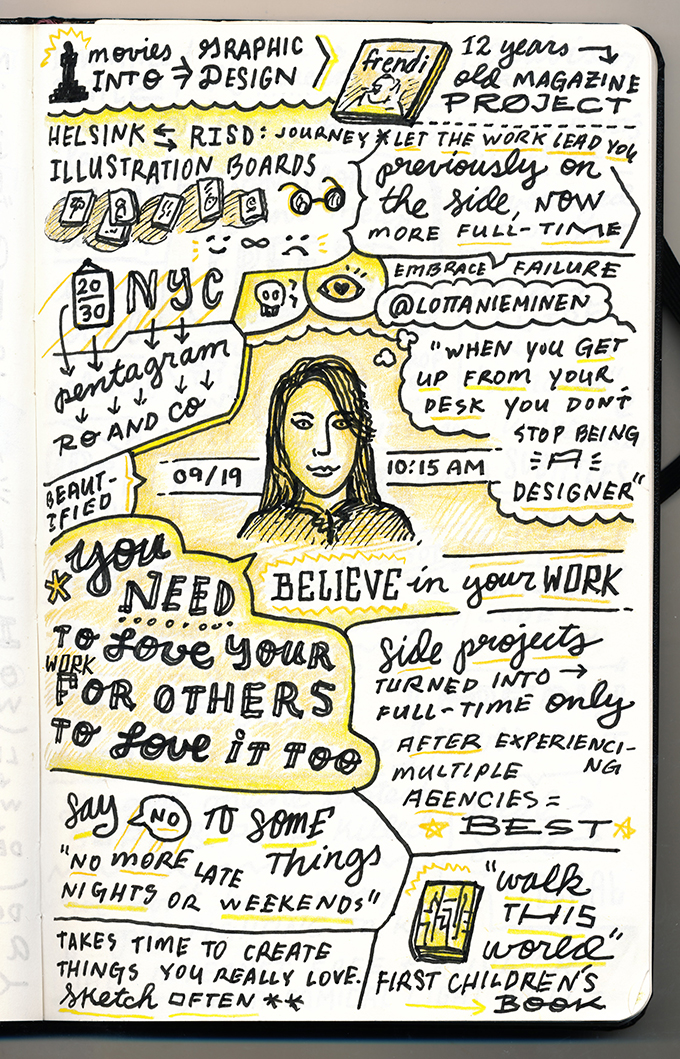 movies GRAPHIC
INTO DESIGN
frendi
12 years
old MAGAZINE
PROJECT
HELSINK RISD: JOURNEY
ILLUSTRATION BOARDS
*LET THE WORK LEAD YOU
previously on
the side, NOW
MORE FULL-TIME
20
30
NYC
pentagram
RO AND CO
BEAUT-
IFIED
EMBRACE FAILURE
@LOTTANIEMINEN
"WHEN YOU GET
UP FROM YOUR
DESK YOU DON'T
STOP BEING
A
DESIGNER"
09/19
10:15 AM
BELIEVE in your WORK
*you
NEED
TO LOVE YOUR
WORK
FOR OTHERS
TO LOVE IT TOO
side projects
TURNED INTO →
FULL-TIME only
AFTER EXPERIENCI-
NG
MULTIPLE
AGENCIES =
BEST
say NO TO SOME
things
"NO MORE LATE
NIGHTS OR WEEKENDS"
TAKES TIME TO CREATE
THINGS YOU REALLY LOVE.
sketch OFTEN **
"walk
THIS
world"
FIRST CHILDREN'S
→ BOOK